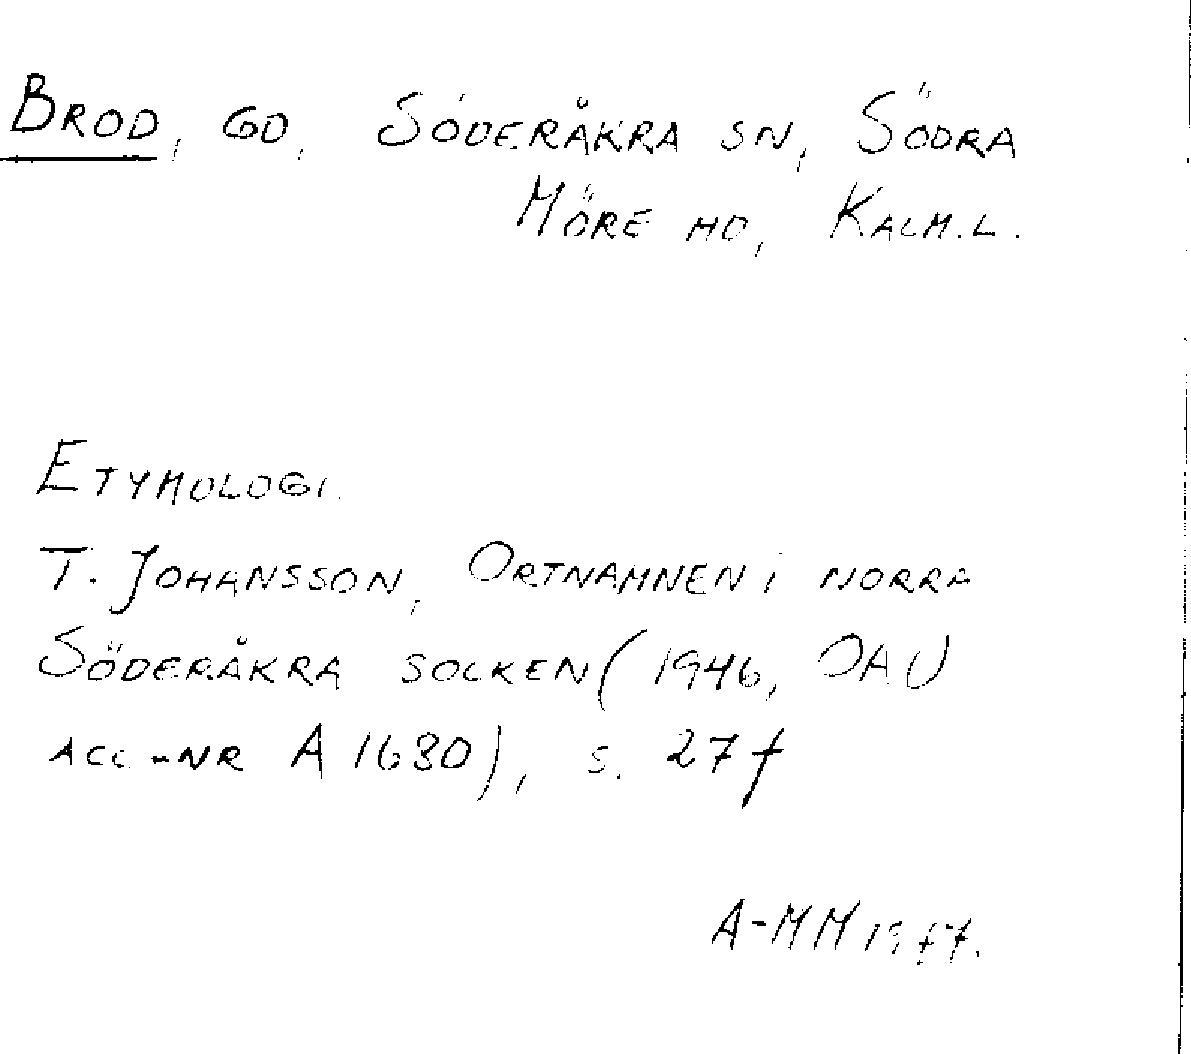 BROD, GD, SÖDERÅKRA SN, SÖDRA
MÖRE HD, KALM.L.
ETYMOLOGI.
T. JOHANSSON, ORTNAMNEN i NORRA
SÖDERÅKRA SOCKEN (1946, OAU
ACC-NR A 1680), s. 27 f
A-MM 1977.